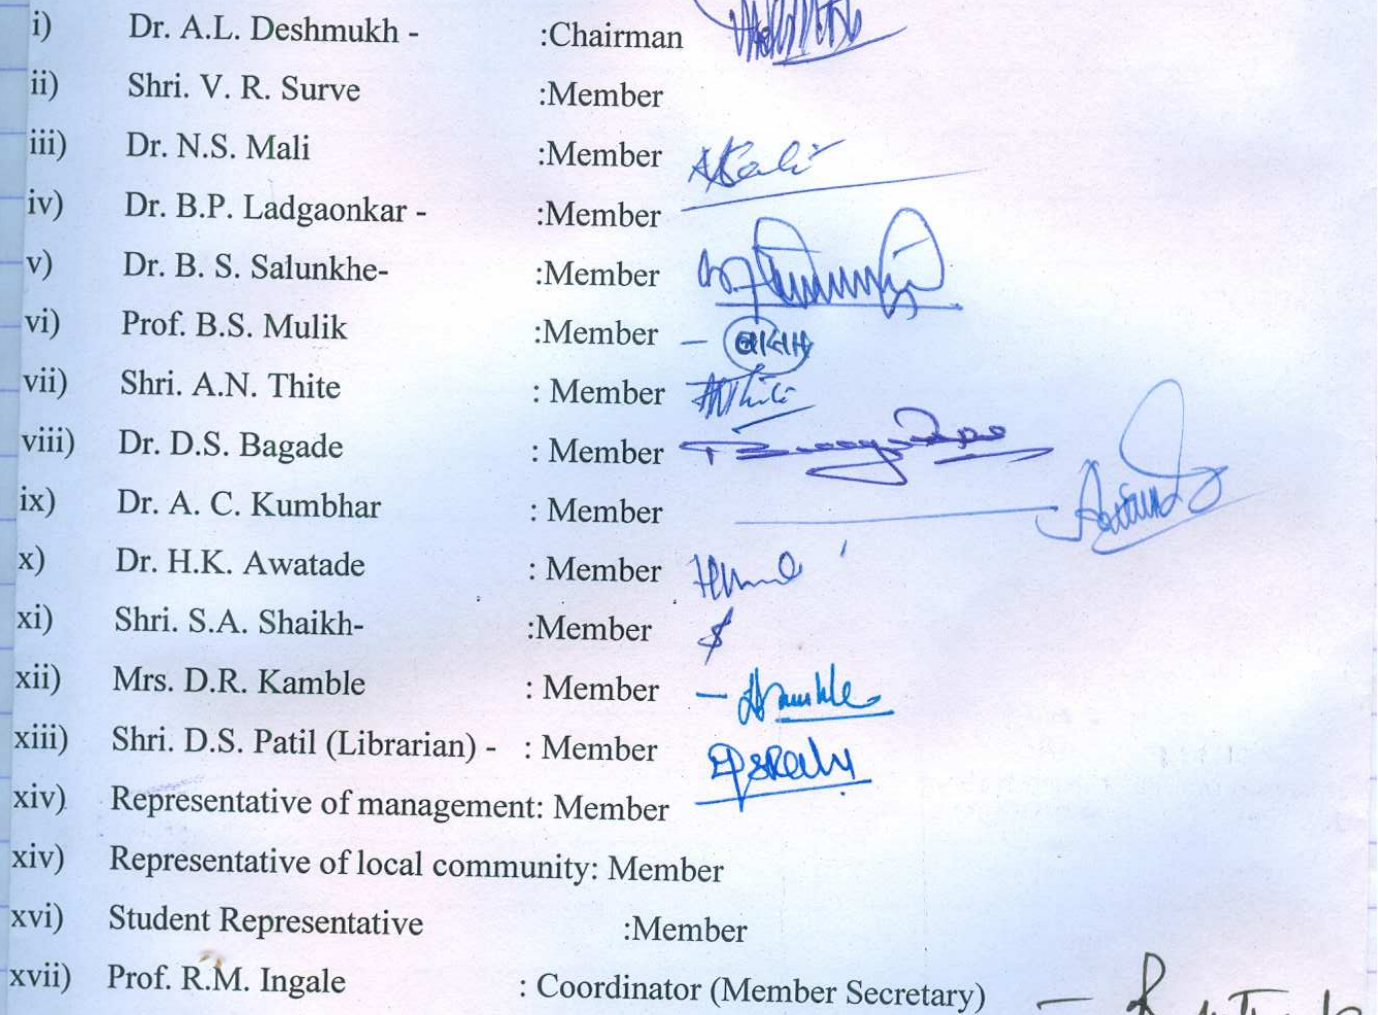 i) Dr. A.L. Deshmukh - :Chairman
ii) Shri. V. R. Surve :Member
iii) Dr. N.S. Mali :Member
iv) Dr. B.P. Ladgaonkar - :Member
v) Dr. B. S. Salunkhe- :Member
vi) Prof. B.S. Mulik :Member -
vii) Shri. A.N. Thite : Member
viii) Dr. D.S. Bagade : Member
ix) Dr. A. C. Kumbhar : Member
x) Dr. H.K. Awatade : Member
xi) Shri. S.A. Shaikh- :Member
xii) Mrs. D.R. Kamble : Member -
xiii) Shri. D.S. Patil (Librarian) - : Member
xiv) Representative of management: Member
xiv) Representative of local community: Member
xvi) Student Representative :Member
xvii) Prof. R.M. Ingale : Coordinator (Member Secretary) -